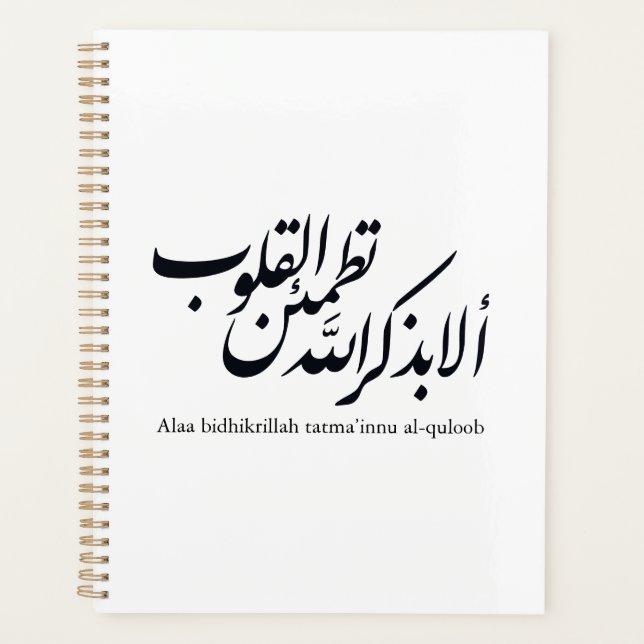 ألا بذكر الله تطمئن القلوب
Alaa bidhikrillah tatma’innu al-quloob